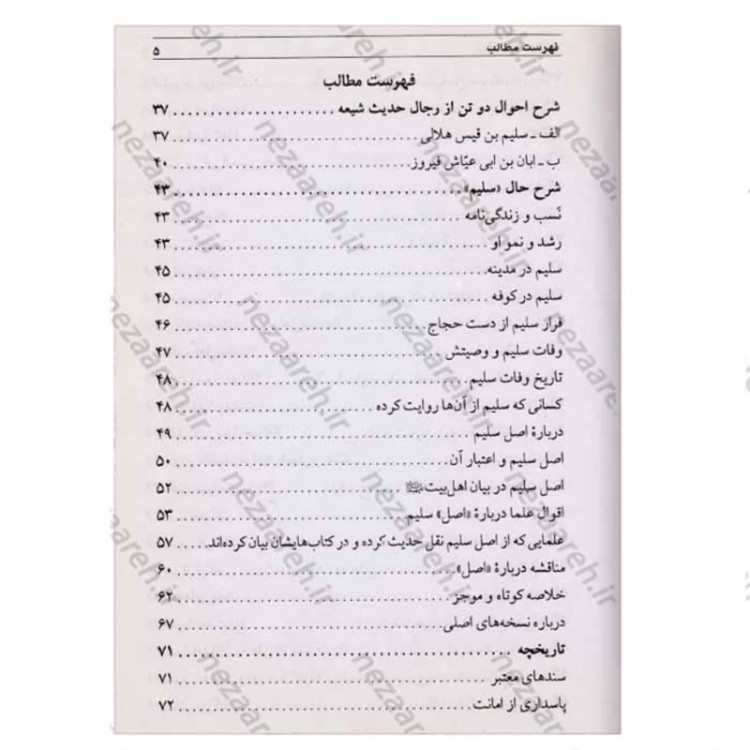 فهرست مطالب ۵
فهرست مطالب
شرح احوال دو تن از رجال حدیث شیعه ........................ ۳۷
الف ـ سلیم بن قیس هلالی ........................ ۳۷
ب ـ ابان بن ابی عیّاش فیروز ........................ ۴۰
شرح حال «سلیم» ........................ ۴۳
نَسب و زندگی‌نامه ........................ ۴۳
رشد و نمو او ........................ ۴۳
سلیم در مدینه ........................ ۴۵
سلیم در کوفه ........................ ۴۵
فرار سلیم از دست حجاج ........................ ۴۶
وفات سلیم و وصیتش ........................ ۴۷
تاریخ وفات سلیم ........................ ۴۸
کسانی که سلیم از آن‌ها روایت کرده ........................ ۴۸
دربارهٔ اصل سلیم ........................ ۴۹
اصل سلیم و اعتبار آن ........................ ۵۰
اصل سلیم در بیان اهل‌بیت ........................ ۵۲
اقوال علما دربارهٔ «اصل» سلیم ........................ ۵۳
علمایی که از اصل سلیم نقل حدیث کرده و در کتاب‌هایشان بیان کرده‌اند ........ ۵۷
مناقشه دربارهٔ «اصل» ........................ ۶۰
خلاصه کوتاه و موجز ........................ ۶۲
درباره نسخه‌های اصلی ........................ ۶۷
تاریخچه ........................ ۷۱
سندهای معتبر ........................ ۷۱
پاسداری از امانت ........................ ۷۲
nezaareh.ir